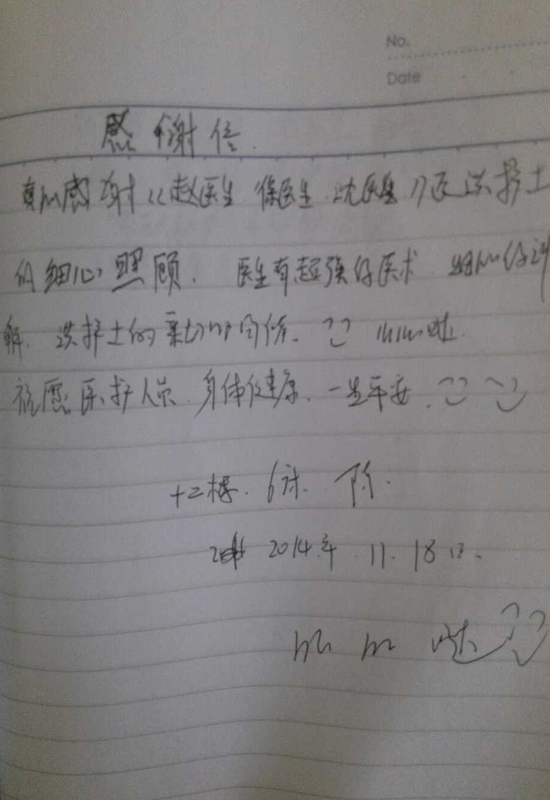 No.
Date
感谢信.
真心感谢 赵医生 保医生 沈医生 及 护士
的细心照顾. 医生有超强的医术 细心的讲
解. 护士的亲切的问候. 么么哒.
祝愿医护人员 身体健康. 一生平安.
十二楼. 6床.
2014年 11. 18日.
么么哒